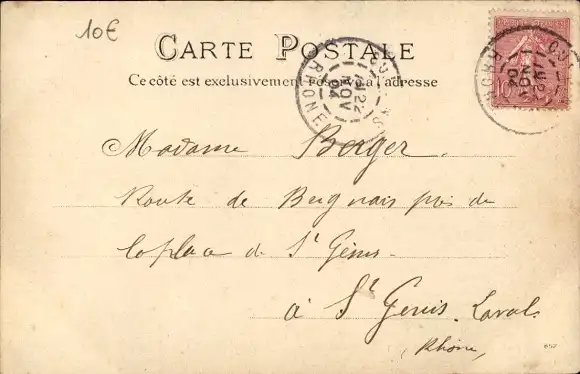 10€
CARTE POSTALE
Ce côté est exclusivement réservé à l'adresse
RHONE
22
NOV
04
10
RHONE
NOV
04
Madame Berger.
Route de près de
la place de St Genis
à St Genis. Laval.
(Rhône)